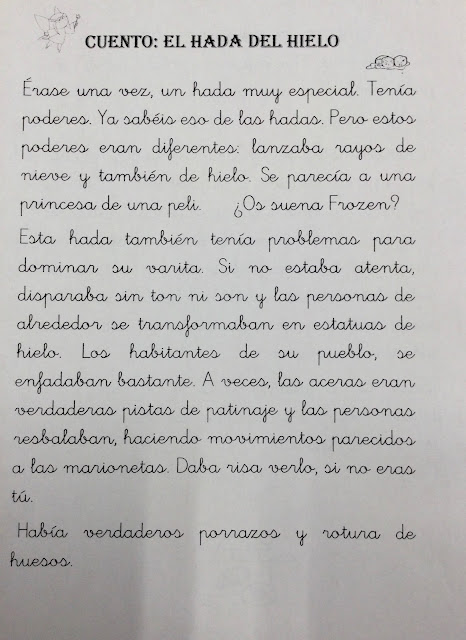 CUENTO: EL HADA DEL HIELO
Érase una vez, un hada muy especial. Tenía
poderes. Ya sabéis eso de las hadas. Pero estos
poderes eran diferentes: lanzaba rayos de
nieve y también de hielo. Se parecía a una
princesa de una peli. ¿Os suena Frozen?
Esta hada también tenía problemas para
dominar su varita. Si no estaba atenta,
disparaba sin ton ni son y las personas de
alrededor se transformaban en estatuas de
hielo. Los habitantes de su pueblo, se
enfadaban bastante. A veces, las aceras eran
verdaderas pistas de patinaje y las personas
resbalaban, haciendo movimientos parecidos
a las marionetas. Daba risa verlo, si no eras
tú.
Había verdaderos porrazos y rotura de
huesos.